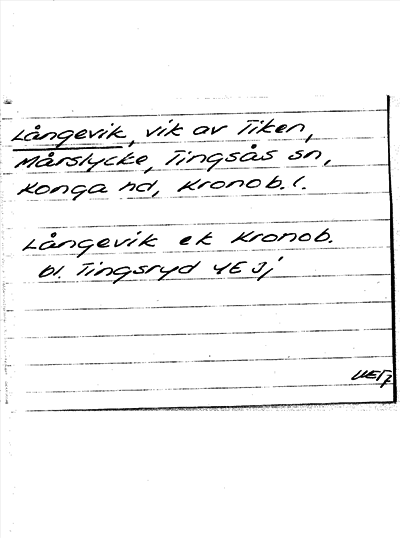 Långevik, vik av Tiken,
Mårslycke, Tingsås sn,
Konga hd, Kronob. l.
Långevik ek Kronob.
bl. Tingsryd 4E 3j